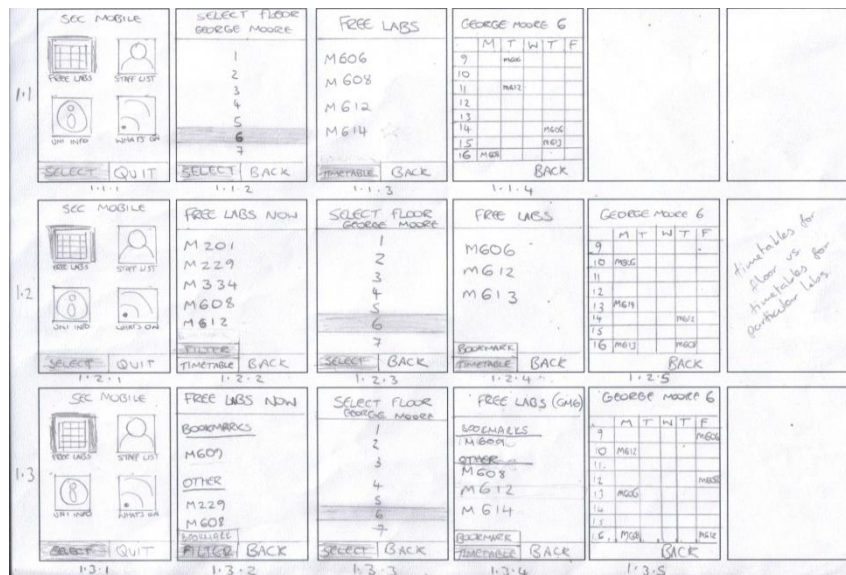 1.1
SEC MOBILE
FREE LABS
STAFF LIST
UNI INFO
WHAT'S ON
SELECT
QUIT
1.1.1
SELECT FLOOR
GEORGE MOORE
1
2
3
4
5
6
7
SELECT
BACK
1.1.2
FREE LABS
M606
M608
M612
M614
TIMETABLE
BACK
1.1.3
GEORGE MOORE 6
M T W T F
9
10
11 M612
12
13
14 M606
15 M613
16
BACK
1.1.4
1.2
SEC MOBILE
FREE LABS
STAFF LIST
UNI INFO
WHAT'S ON
SELECT
QUIT
1.2.1
FREE LABS NOW
M201
M229
M334
M608
M612
FILTER
TIMETABLE
BACK
1.2.2
SELECT FLOOR
GEORGE MOORE
1
2
3
4
5
6
7
SELECT
BACK
1.2.3
FREE LABS
M606
M612
M613
BOOKMARK
TIMETABLE
BACK
1.2.4
GEORGE MOORE 6
M T W T F
9
10 M606
11
12
13 M614
14 M612
15
16 M613
BACK
1.2.5
timetables for
floor vs
timetables for
particular labs
1.3
SEC MOBILE
FREE LABS
STAFF LIST
UNI INFO
WHAT'S ON
SELECT
QUIT
1.3.1
FREE LABS NOW
BOOKMARKS
M609
OTHER
M229
M608
FILTER
BACK
1.3.2
SELECT FLOOR
GEORGE MOORE
1
2
3
4
5
6
7
SELECT
BACK
1.3.3
FREE LABS (GM6)
BOOKMARKS
M609
OTHER
M608
M612
M614
BOOKMARK
TIMETABLE
BACK
1.3.4
GEORGE MOORE 6
M T W T F
9 M606
10 M612
11
12
13 M606
14
15
16
BACK
1.3.5